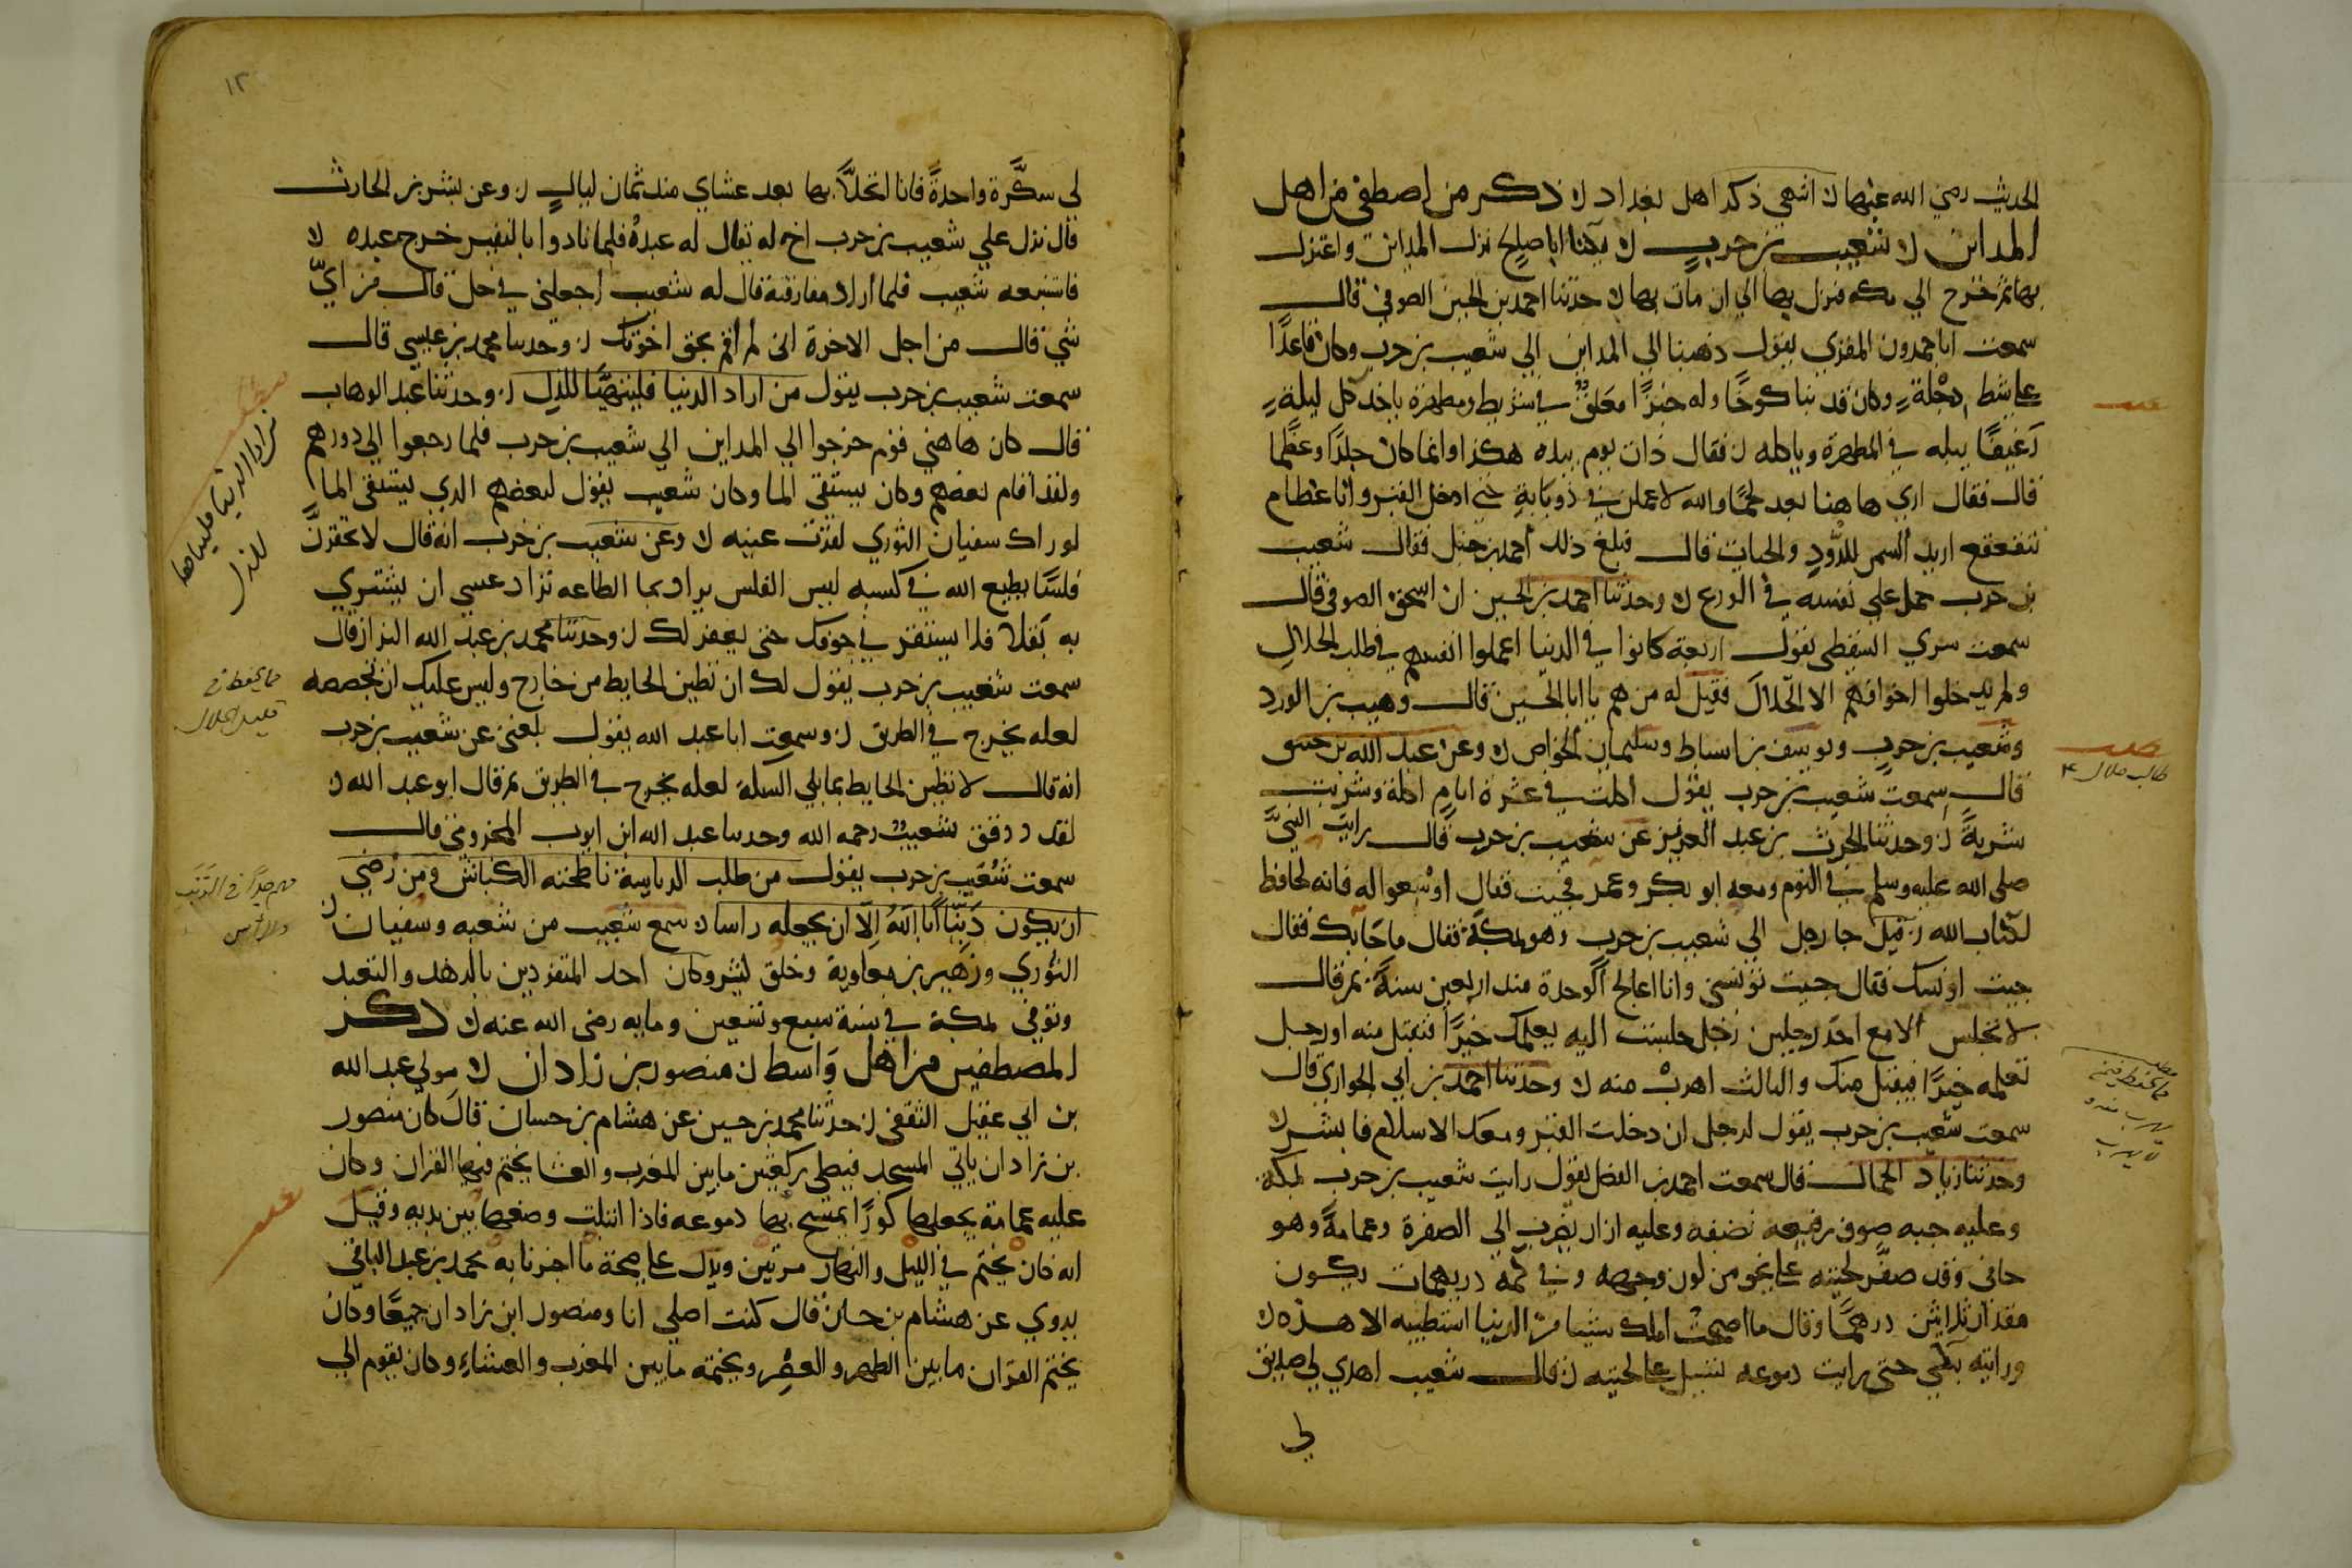 الحديث رضي الله عنهما ن انتهى ذكر اهل بغداد ن ذكر من اصطفى من اهل
المداين ن شعيب بن حرب ن يكنا ابا صالح نزل المداين واعتزل
بها ثم خرج الي مكه فنزل بها الي ان مات بها ن حدثنا احمد بن الحسن الصوفي قال
سمعت ابا حمدون المقري يقول ذهبنا الي المداين الي شعيب بن حرب وكان قاعدًا
على شط دجلةٍ وكان قد بنا كوخًا وله خبزًا معلقٌ في شريط ومطهرة ياخذ كل ليلةٍ
رغيفًا يبله في المطهرة وياكله ن فقال ذات يوم بيده هكذا وانما كان جلدًا وعظمًا
قال فقال اري هاهنا بعد لحمًا والله لاعملن في ذوبانه حتى ادخل القبر وانا عظام
تتقعقع اريد السمن للدُّودِ والحيات قال فبلغ ذلك احمد بن حنبل فقال شعيب
بن حرب حمل علي نفسه في الورع ن وحدثنا احمد بن الحسين ان اسحق الصوفي قال
سمعت سري السقطي يقول اربعة كانوا في الدنيا اعملوا انفسهم في طلب الحلال
ولم يدخلوا اجوافهم الا الحلال فقيل له من هم يا ابا الحسين قال وهيب بن الورد
وشعيب بن حرب ويوسف بن اسباط وسليمان الخواص ن وعن عبد الله بن خبيق
قال سمعت شعيب بن حرب يقول اكلت في عشرة ايام اكلة وشربت
شربةً ن وحدثنا الحرث بن عبد العزيز عن شعيب بن حرب قال رايت النبيَّ
صلي الله عليه وسلم في النوم ومعه ابو بكر وعمر فجيت فقال اوسعوا له فانه لحافظ
لكتاب الله ن قيل جا رجل الي شعيب بن حرب وهو بمكة فقال ما جا بك فقال
جيت اونسك فقال جيت تونسني وانا اعالج الوحدة منذ اربعين سنةً ثم قال
لا تجلس الا مع احد رجلين رجل جلست اليه يعلمك خيرًا فتقبل منه او رجل
تعلمه خيرًا فيقبل منك والثالث اهرب منه ن وحدثنا احمد بن ابي الحواري قال
سمعت شعيب بن حرب يقول لرجل ان دخلت القبر ومعك الاسلام فابشر ن
وحدثنا زياد الجمال قال سمعت احمد بن الفضل يقول رايت شعيب بن حرب بمكة
وعليه جبه صوف رقيعه نصفه وعليه ازار يضرب الي الصفرة وعمامةً وهو
حافى وقد صفَّر لحيته على نحو من لون وجهه وفي كمه دريهمات يكون
مقدار ثلاثين درهمًا وقال ما اصبحت املك شيا من الدنيا استطيبه الا هذه ن
ورايته يبكي حتى رايت دموعه تسيل على لحيته ن قال شعيب اهدي لي صديق
لي
مطلب
طالب حلال ٤
١٢
لى سكَّرة واحدةً فانا اتحلاَّ بها بعد عشاي منذ ثمان ليالٍ ن وعن بشر بن الحارث
قال نزل علي شعيب بن حرب اخ له يقال له عبدةُ فلما نادوا بالنفير خرج عبده ن
فاتبعه شعيب فلما اراد مفارقته قال له شعيب اجعلني في حل قال من ايّ
شي قال من اجل الاخرة اني لم اقم بحق اخوتك ن وحدثنا محمد بن عيسي قال
سمعت شعيب بن حرب يقول من اراد الدنيا فليتهيَّا للذل ن وحدثنا عبد الوهاب
قال كان هاهني قوم خرجوا الي المداين الي شعيب بن حرب فلما رجعوا الي دورهم
ولقد اقام بعضهم وكان يستقى الما وكان شعيب يقول لبعضهم الذي يستقى الما
لو راك سفيان الثوري لقرّت عينه ن وعن شعيب بن حرب انه قال لا تحقرنَّ
فلسًا يطيع الله في كسبه ليس الفلس يراد بما الطاعه تزاد عسي ان يشتري
به بقلا فلا يستقر في جوفك حتى يغفر لك ن وحدثنا محمد بن عبد الله البزاز قال
سمعت شعيب بن حرب يقول لك ان تطين الحايط من خارج وليس عليك ان تجصصه
لعله يخرج في الطريق ن وسمعت ابا عبد الله يقول بلغني عن شعيب بن حرب
انه قال لا تطين الحايط مما يلي السكة لعله يخرج في الطريق ثم قال ابو عبد الله ن
لقد دقق شعيبٌ رحمه الله وحدثنا عبد الله ابن ايوب المخزومي قال
سمعت شعيب بن حرب يقول من طلب الرياسة ناطحته الكباش ومن رضي
ان يكون ذنبًا ابا اللهُ الاّ ان يجعله راسا ن سمع شعيب من شعبه وسفيان
الثوري وزهير بن معاوية وخلق كثير وكان احد المتفردين بالزهد والتعبد
وتوفي بمكة في سنة سبع وتسعين ومايه رضى الله عنه ن ذكر
المصطفين من اهل واسط ن منصور بن زاذان ن مولي عبد الله
بن ابي عقيل الثقفي ن حدثنا محمد بن حسين عن هشام بن حسان قال كان منصور
بن زاذان ياتي المسجد فيصلى ركعتين ما بين المغرب والعشا يختم فيها القران وكان
عليه عمامة يجعلها كورًا يمسح بها دموعه فاذا ابتلت وضعها بين يديه وقيل
انه كان يختم في الليل والنهار مرتين ويدل على صحة ما اخبرنا به محمد بن عبد الباقي
يروي عن هشام بن حسان قال كنت اصلي انا ومنصور ابن زاذان جميعًا وكان
يختم القران ما بين الظهر والعصر ويختمه ما بين المغرب والعشاء وكان يقوم الي
من اراد الدنيا فليتهيا
للذل